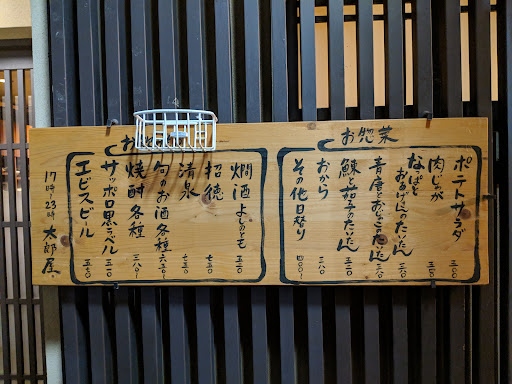 お惣菜
ポテトサラダ 三〇〇
肉じゃが
なっぱとおあげさんのたいたん
青唐とおじゃこのたいたん
鰊と茄子のたいたん 五二〇
おから 三八〇
その他日替り 四〇〇〜
お
燗酒 五二〇
招徳 七五〇
清泉 七五〇
旬のお酒各種 六五〇〜
焼酎各種 三八〇〜
サッポロ黒ラベル 五二〇
エビスビール 五七〇
17時〜23時 太郎屋